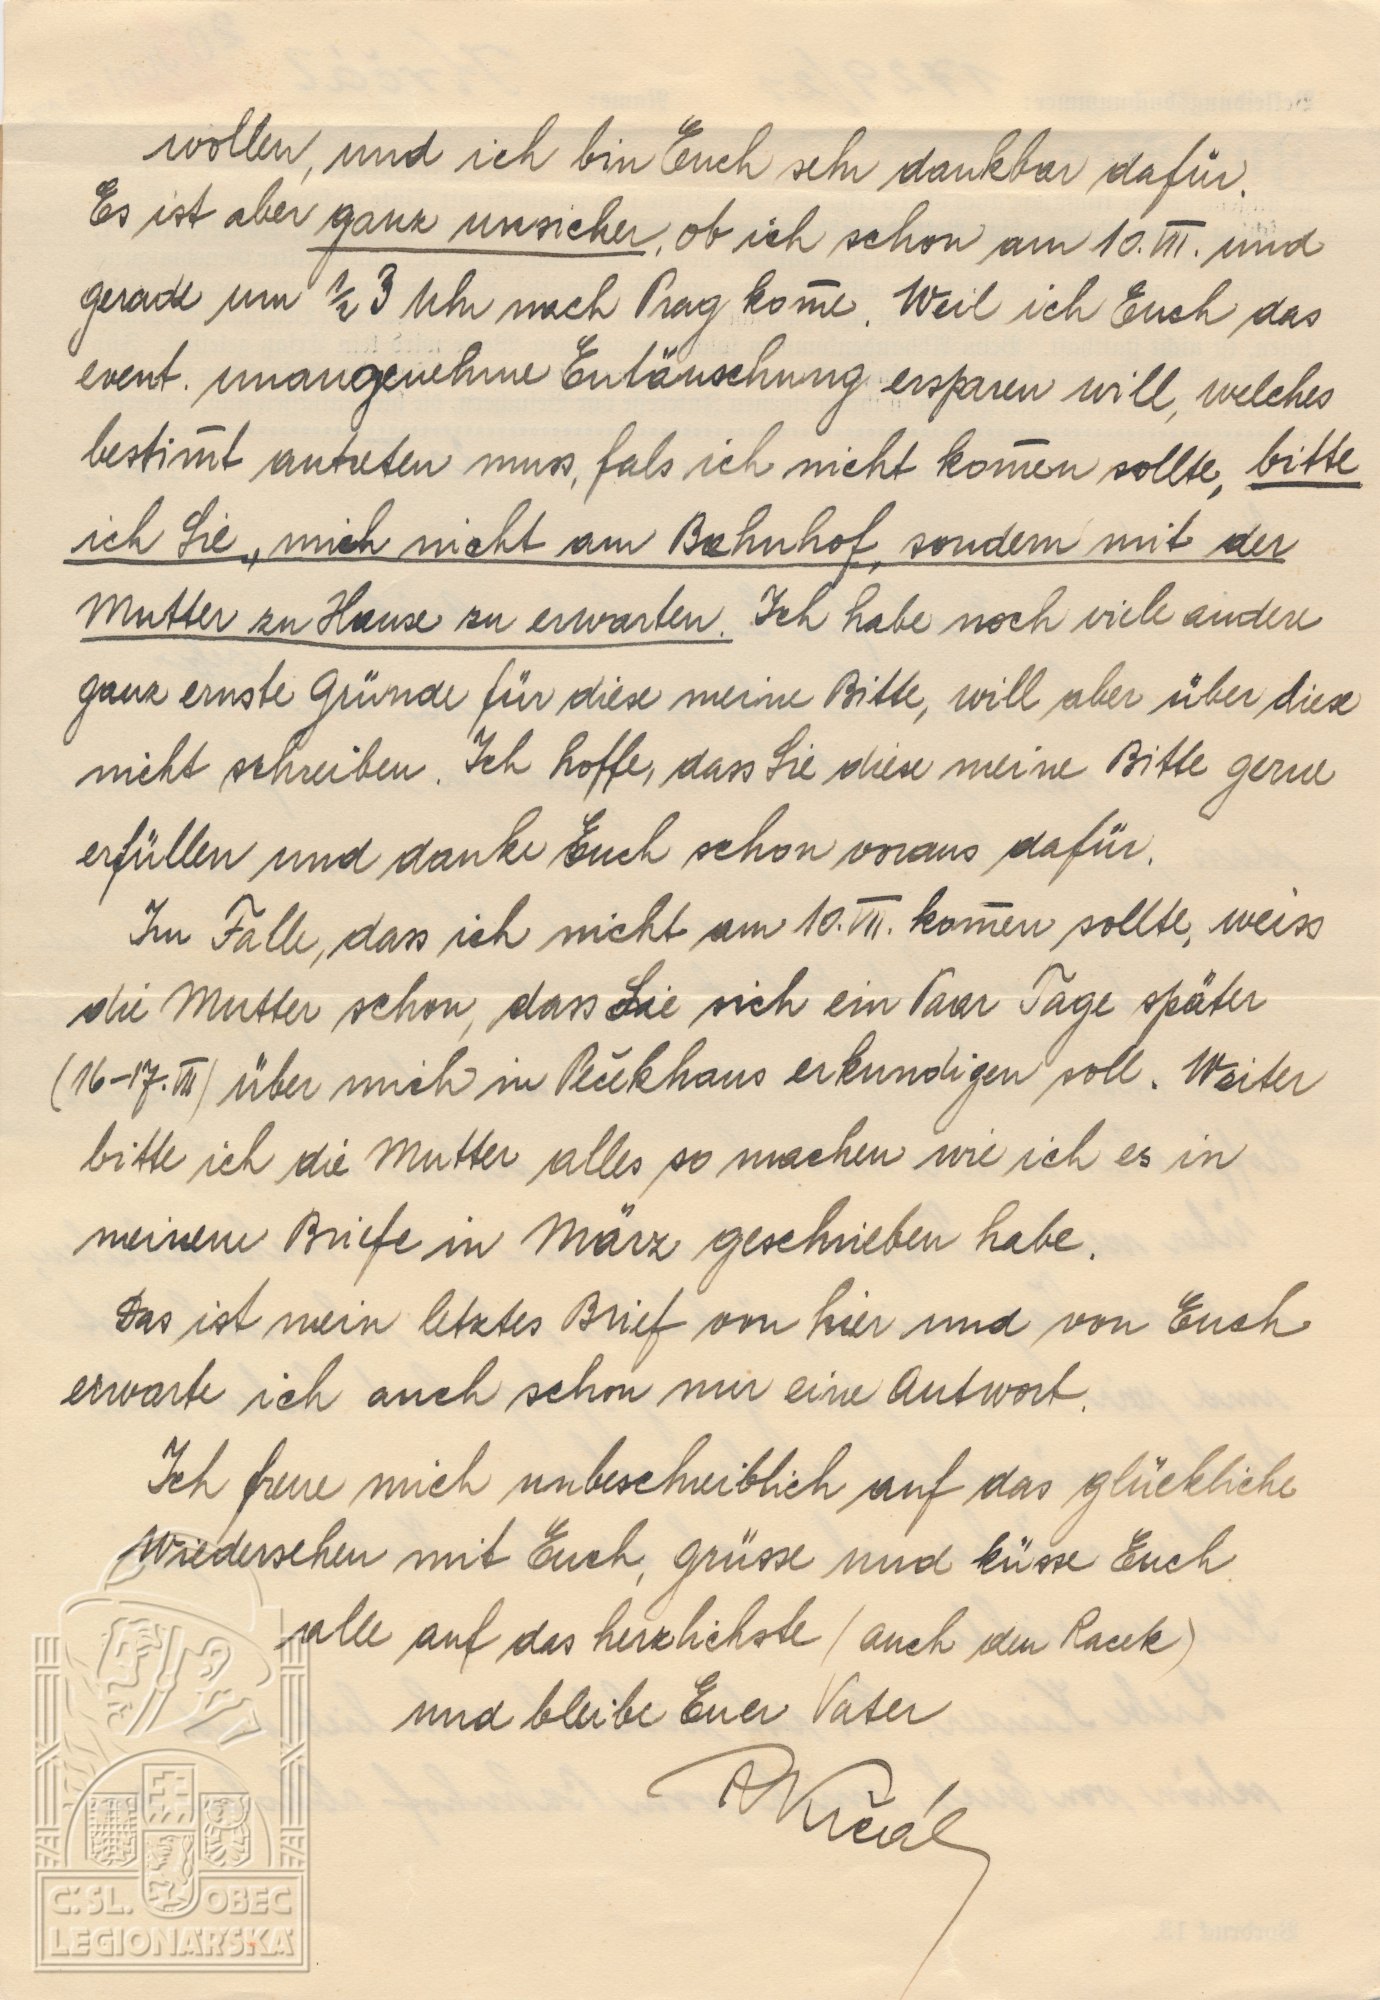 wollen, und ich bin Euch sehr dankbar dafür.
Es ist aber ganz unsicher, ob ich schon am 10.VII. und
gerade um ½ 3 Uhr nach Prag kom̅e. Weil ich Euch das
event. unangenehme Entäuschung ersparen will, welches
bestim̅t antreten muss, fals ich nicht kom̅en sollte, bitte
ich Sie, mich nicht am Bahnhof, sondern mit der
Mutter zu Hause zu erwarten. Ich habe noch viele andere
ganz ernste Gründe für diese meine Bitte, will aber über diese
nicht schreiben. Ich hoffe, dass Sie diese meine Bitte gerne
erfüllen und danke Euch schon voraus dafür.
Im Falle, dass ich nicht am 10.VII. kom̅en sollte, weiss
die Mutter schon, dass Sie sich ein Paar Tage später
(16-17.VII) über mich in Pečekhaus erkundigen soll. Weiter
bitte ich die Mutter alles so machen wie ich es in
meinem Briefe in März geschrieben habe.
Das ist mein letztes Brief von hier und von Euch
erwarte ich auch schon nur eine Antwort.
Ich freue mich unbeschreiblich auf das glückliche
Wiedersehen mit Euch, grüsse und küsse Euch
alle auf das herzlichste (auch den Racek)
und bleibe Euer Vater
Č.SL. OBEC
LEGIONÁŘSKÁ